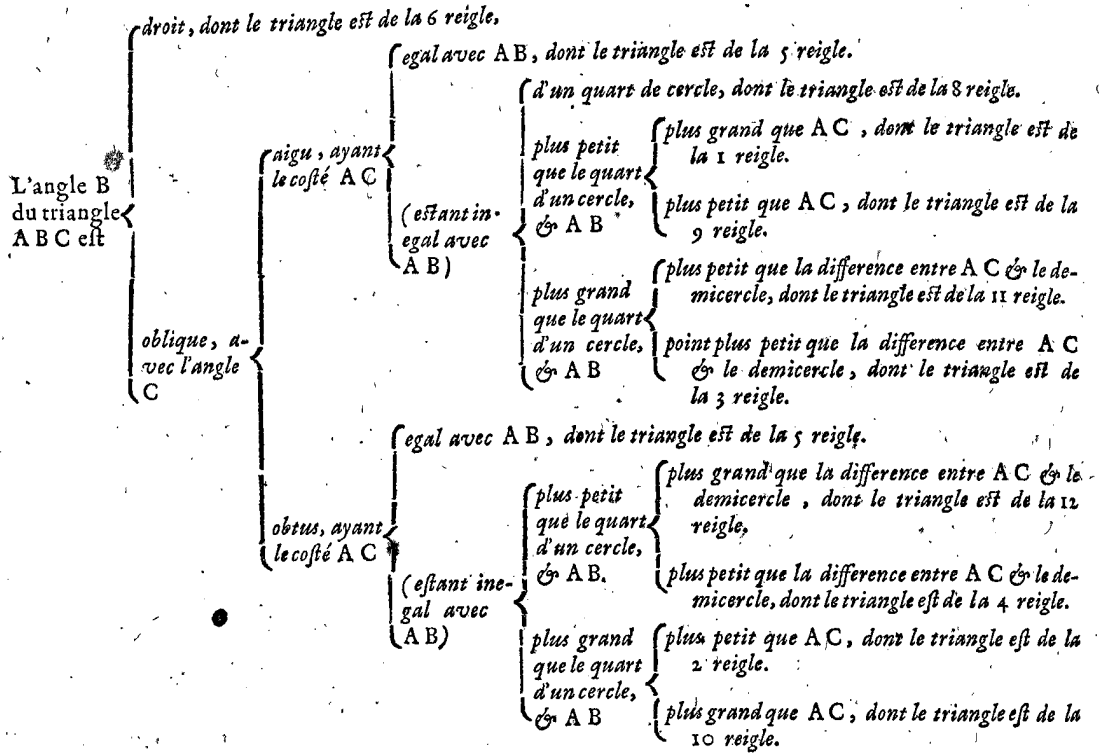 droit, dont le triangle est de la 6 reigle.
L'angle B
du triangle
A B C est
oblique, a-
vec l'angle
C
aigu, ayant
le costé A C
egal avec A B, dont le triangle est de la 5 reigle.
(estant in-
egal avec
A B)
d'un quart de cercle, dont le triangle est de la 8 reigle.
plus petit
que le quart
d'un cercle,
& A B
plus grand que A C, dont le triangle est de
la 1 reigle.
plus petit que A C, dont le triangle est de la
9 reigle.
plus grand
que le quart
d'un cercle,
& A B
plus petit que la difference entre A C & le de-
micercle, dont le triangle est de la 11 reigle.
point plus petit que la difference entre A C
& le demicercle, dont le triangle est de
la 3 reigle.
obtus, ayant
le costé A C
egal avec A B, dont le triangle est de la 5 reigle.
(estant ine-
gal avec
A B)
plus petit
que le quart
d'un cercle,
& A B.
plus grand que la difference entre A C & le
demicercle, dont le triangle est de la 12
reigle,
plus petit que la difference entre A C & le de-
micercle, dont le triangle est de la 4 reigle.
plus grand
que le quart
d'un cercle,
& A B
plus petit que A C, dont le triangle est de la
2 reigle.
plus grand que A C, dont le triangle est de la
10 reigle.